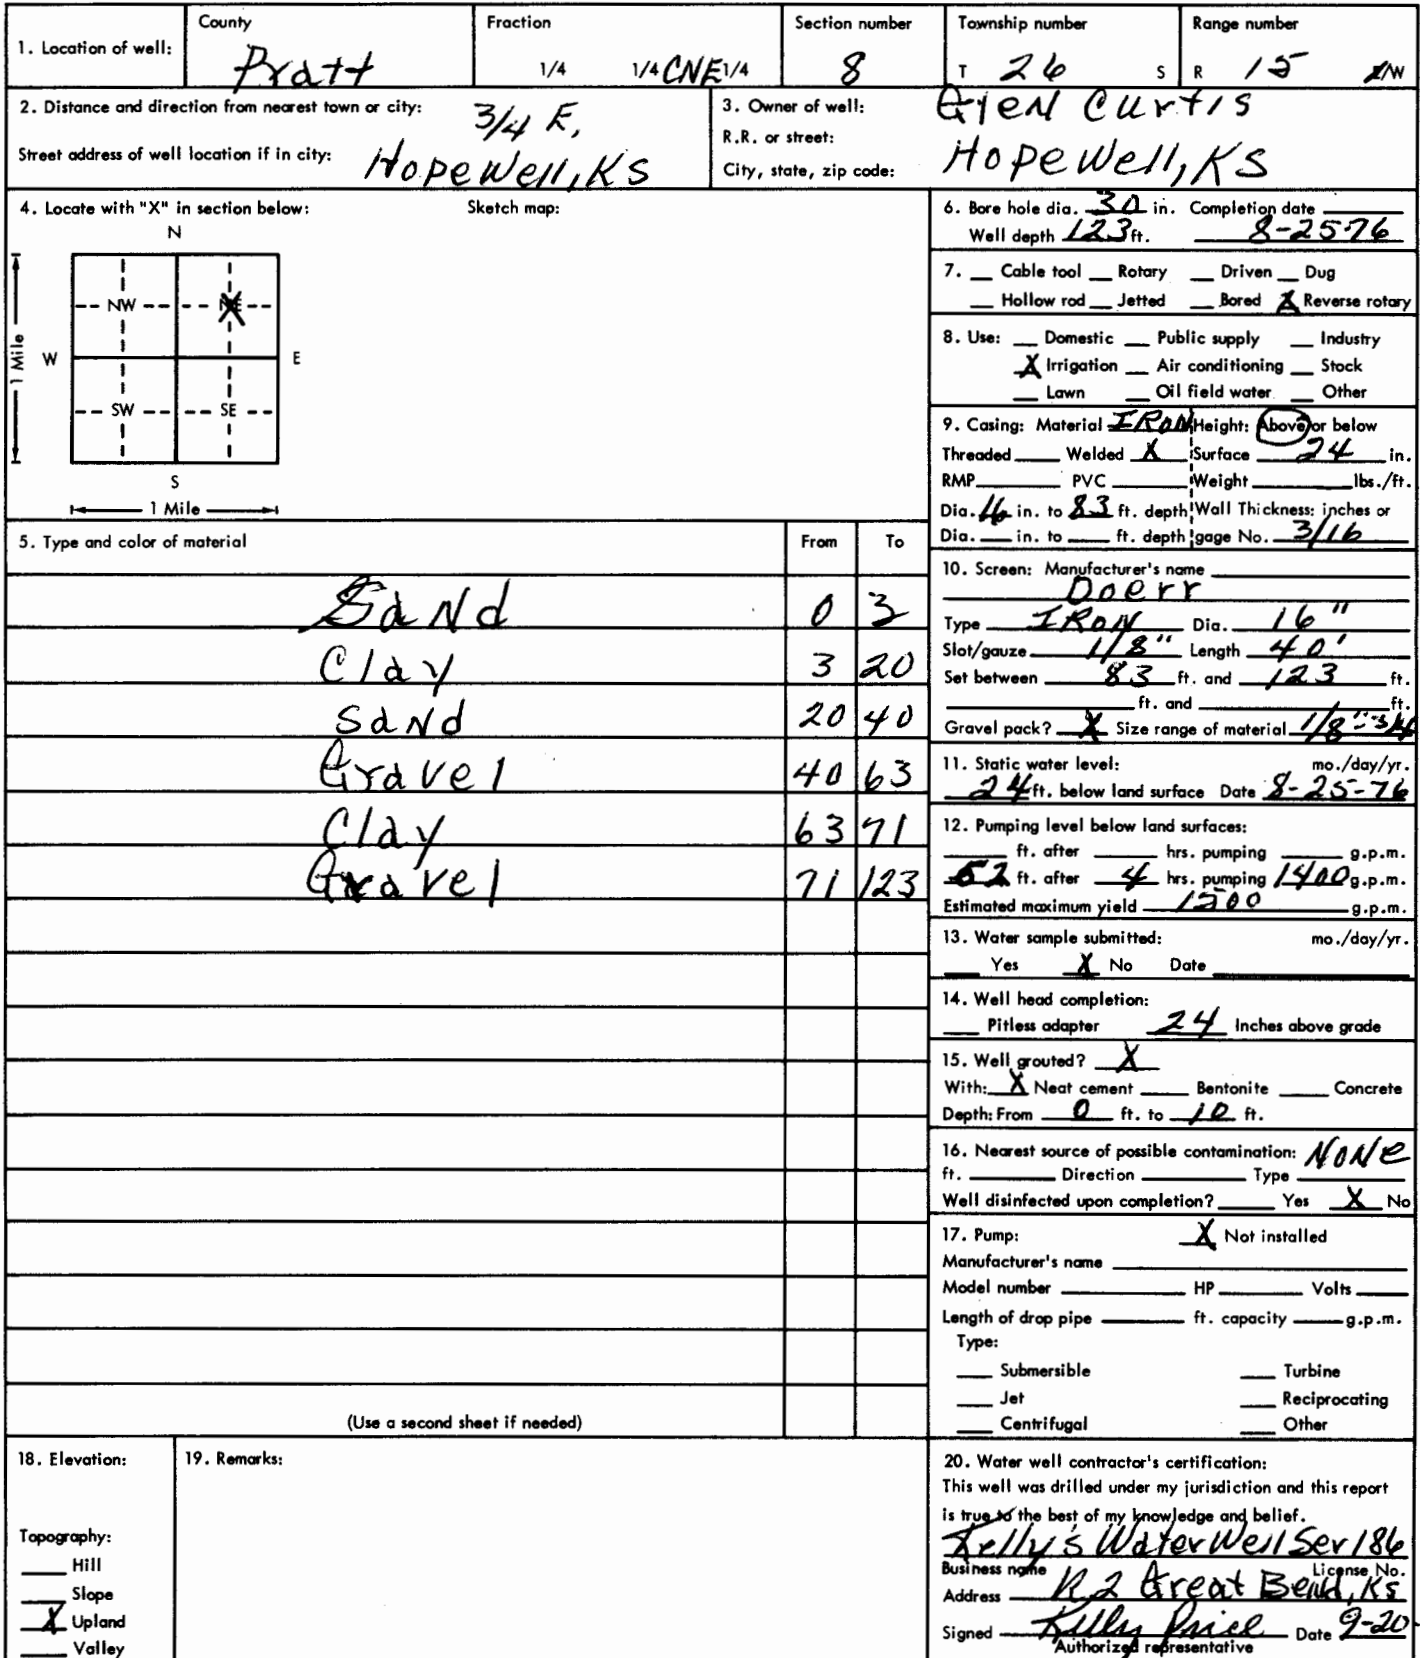 1. Location of well: County Pratt Fraction 1/4 1/4 CNE 1/4 Section number 8 Township number T 26 S Range number R 15 E/W
2. Distance and direction from nearest town or city: 3/4 E,
Street address of well location if in city: Hopewell, KS
3. Owner of well: Glen Curtis
R.R. or street:
City, state, zip code: Hopewell, KS
4. Locate with "X" in section below: Sketch map:
N
NW NE
1 Mile W E
SW SE
S
1 Mile
5. Type and color of material From To
Sand 0 3
Clay 3 20
Sand 20 40
Gravel 40 63
Clay 63 71
Gravel 71 123
(Use a second sheet if needed)
6. Bore hole dia. 30 in. Completion date
Well depth 123 ft. 8-25-76
7. __ Cable tool __ Rotary __ Driven __ Dug
__ Hollow rod __ Jetted __ Bored X Reverse rotary
8. Use: __ Domestic __ Public supply __ Industry
X Irrigation __ Air conditioning __ Stock
__ Lawn __ Oil field water __ Other
9. Casing: Material IRON Height: Above or below
Threaded ___ Welded X Surface 24 in.
RMP ___ PVC ___ Weight ___ lbs./ft.
Dia. 16 in. to 83 ft. depth Wall Thickness: inches or
Dia. __ in. to __ ft. depth gage No. 3/16
10. Screen: Manufacturer's name
Doerr
Type IRON Dia. 16"
Slot/gauze 1/8" Length 40'
Set between 83 ft. and 123 ft.
___ ft. and ___ ft.
Gravel pack? X Size range of material 1/8"-3/4
11. Static water level: mo./day/yr.
24 ft. below land surface Date 8-25-76
12. Pumping level below land surfaces:
___ ft. after ___ hrs. pumping ___ g.p.m.
52 ft. after 4 hrs. pumping 1400 g.p.m.
Estimated maximum yield 1500 g.p.m.
13. Water sample submitted: mo./day/yr.
__ Yes X No Date
14. Well head completion:
__ Pitless adapter 24 Inches above grade
15. Well grouted? X
With: X Neat cement __ Bentonite __ Concrete
Depth: From 0 ft. to 10 ft.
16. Nearest source of possible contamination: NONE
ft. ___ Direction ___ Type ___
Well disinfected upon completion? __ Yes X No
17. Pump: X Not installed
Manufacturer's name
Model number ___ HP ___ Volts ___
Length of drop pipe ___ ft. capacity ___ g.p.m.
Type:
__ Submersible __ Turbine
__ Jet __ Reciprocating
__ Centrifugal __ Other
18. Elevation:
Topography:
__ Hill
__ Slope
X Upland
__ Valley
19. Remarks:
20. Water well contractor's certification:
This well was drilled under my jurisdiction and this report
is true to the best of my knowledge and belief.
Kelly's Water Well Ser 186
Business name License No.
Address R2 Great Bend, KS
Signed Kelly Price Date 9-20-
Authorized representative